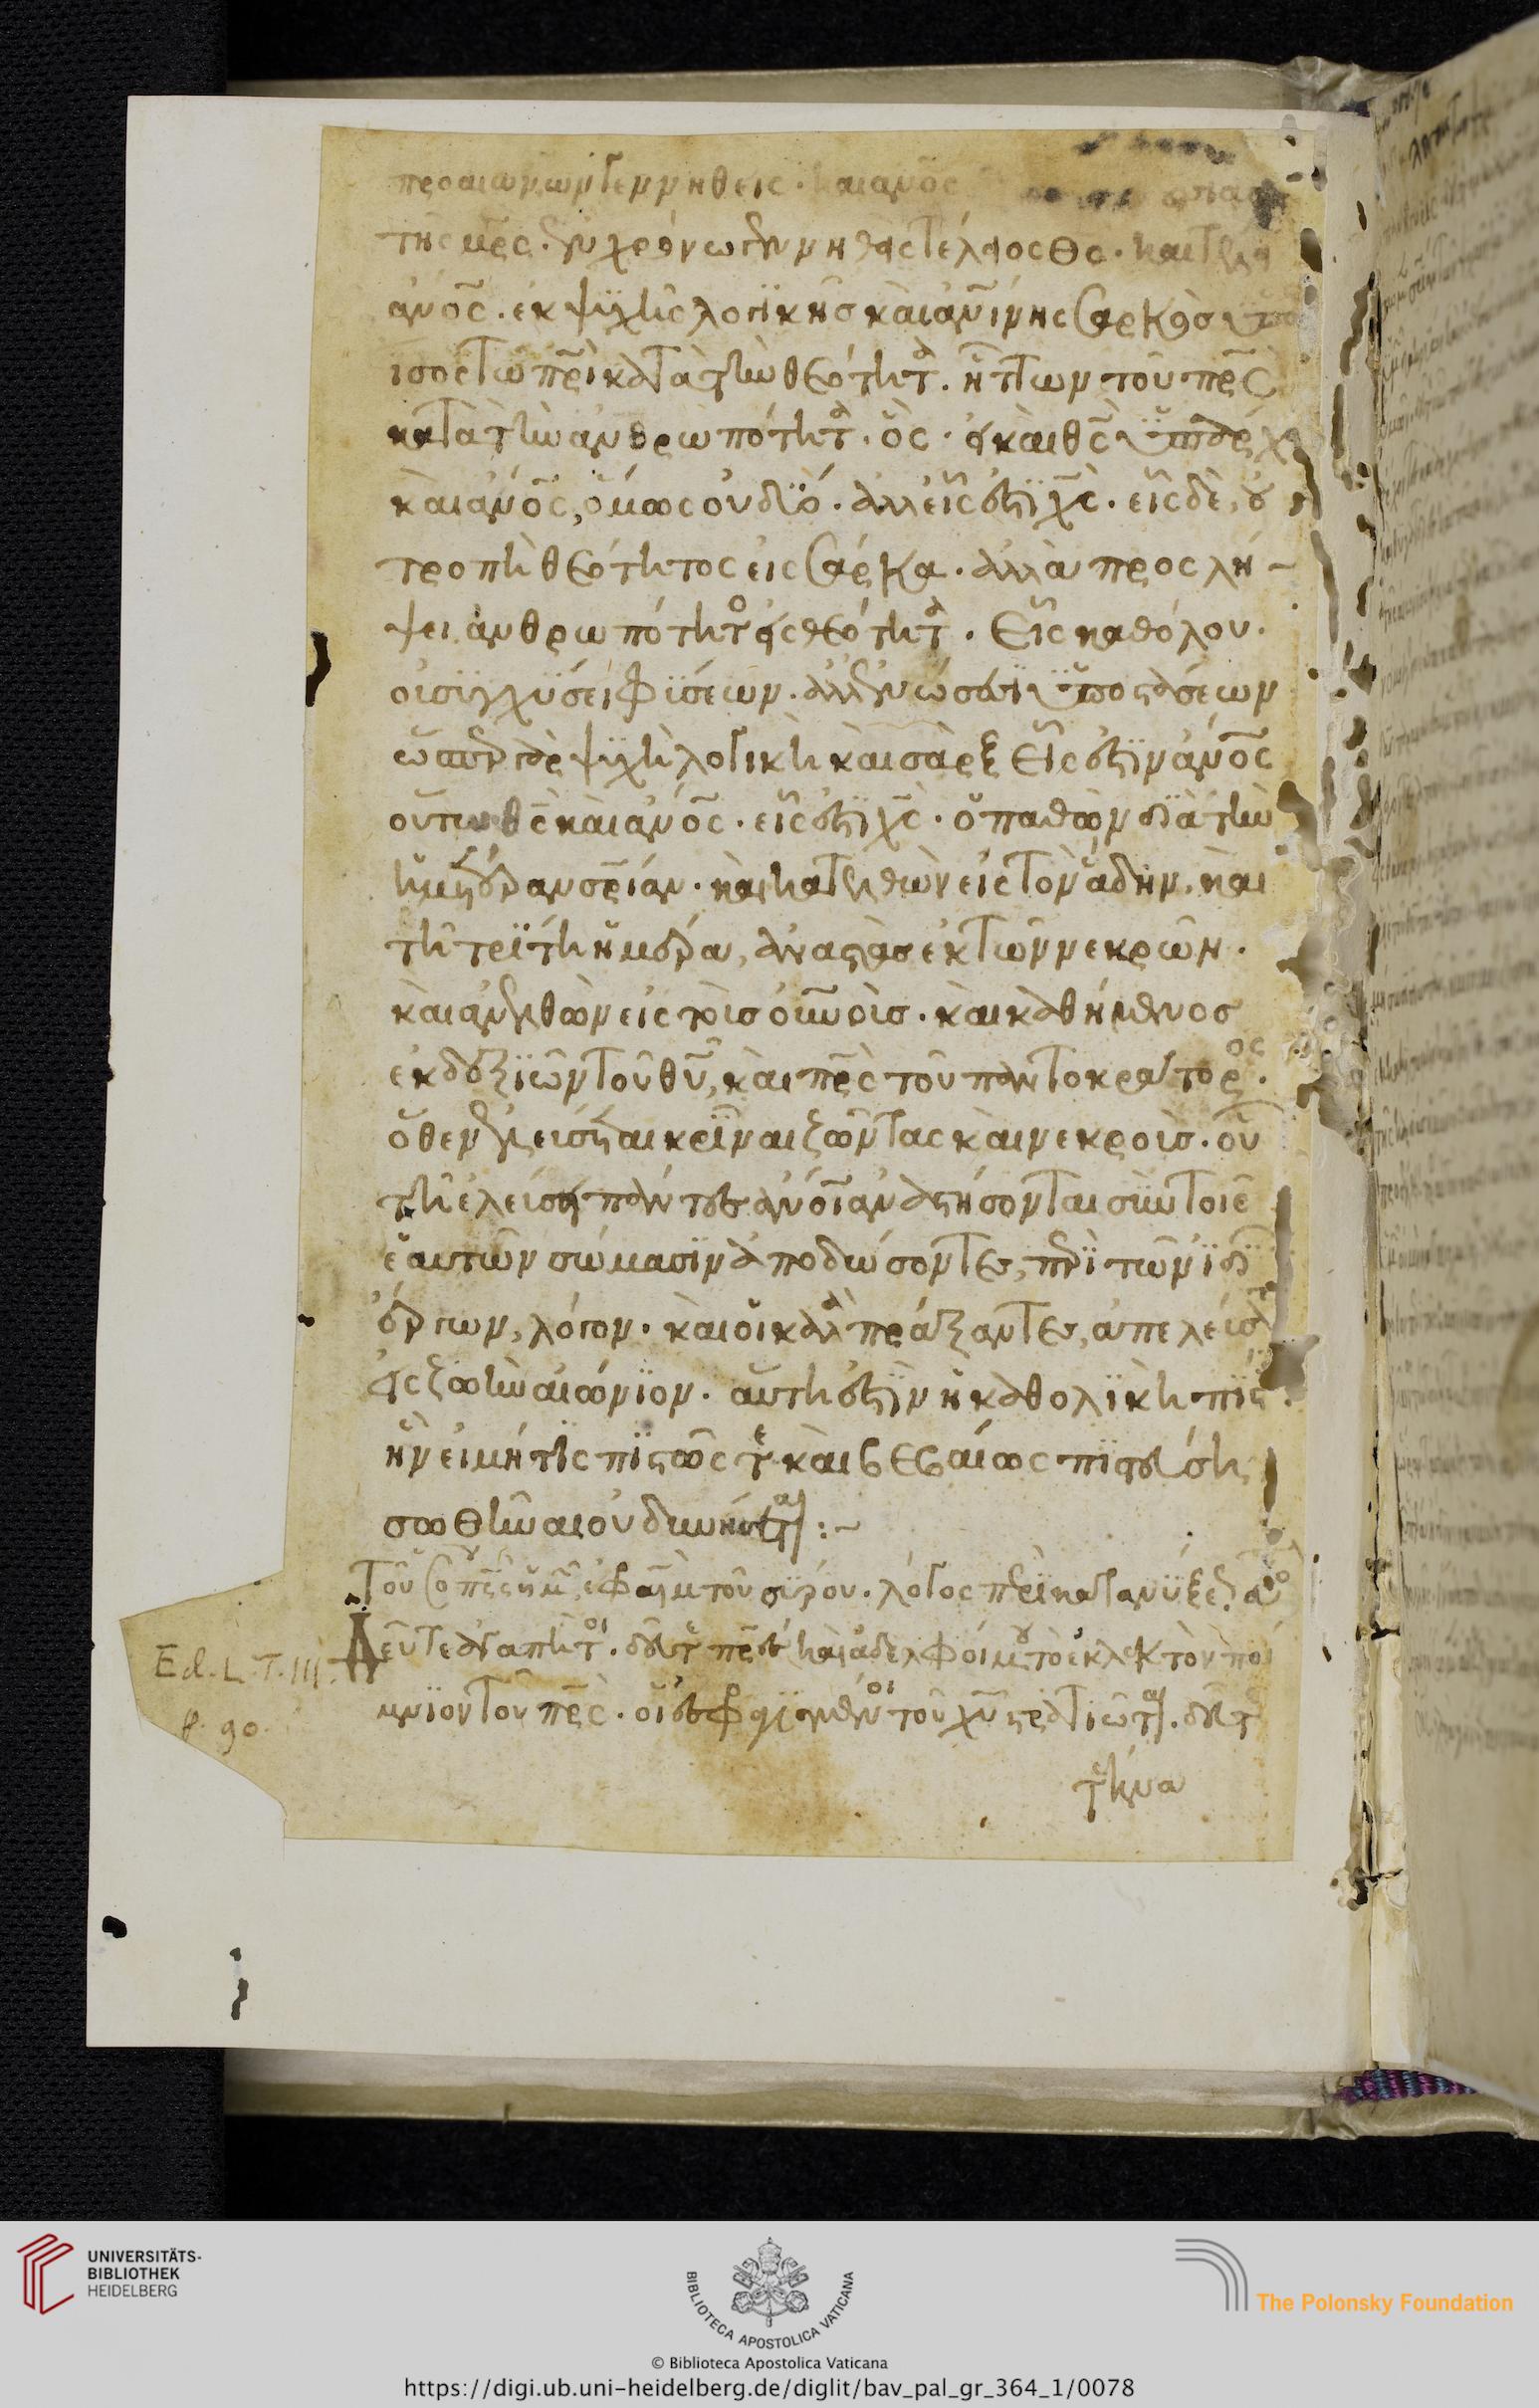 προαιώνων γεννηθεὶς · καὶ ἄνος
τῆς μρς · ἐν χρόνω γεννηθείς τέλειος θς · καὶ τέλει
ἄνος · ἐκ ψυχῆς λογικῆς καὶ ἀνίνης σαρκὸς ὑπο
ἴσος τῶ πρὶ κατὰ τὴν θεότητα · ἥττων τοῦ πρς
κατὰ τὴν ἀνθρωπότητα · ὃς · εἰ καὶ θς ὑπάρχει
καὶ ἄνος, ὅμως οὐ δύο · ἀλλ εἷς ἐστὶ χς · εἷς δὲ, οὐ
τροπῆ θεότητος εἰς σάρκα · ἀλλὰ προσλή-
ψει ἀνθρωπότητος εἰς θεότητα · Εἷς καθόλου ·
οὐ συγχύσει φύσεων · ἀλλ ἑνώσει ὑποστάσεων
ὥσπερ γὰρ ψυχὴ λογικὴ καὶ σὰρξ εἷς ἐστὶν ἄνος
οὕτω θς καὶ ἄνος · εἷς ἐστὶ χς · ὁ παθὼν διὰ τὴν
ἡμετέραν σρίαν · καὶ κατελθὼν εἰς τὸν ἅδην, καὶ
τῆ τρίτη ἡμέρα, ἀναστὰς ἐκ τῶν νεκρῶν ·
καὶ ἀνελθὼν εἰς τοὺς οὐνοὺς · καὶ καθήμενος
ἐκ δεξιῶν τοῦ θυ, καὶ πρς τοῦ παντοκράτορος ·
ὅθεν ἐλεύσεται κρῖναι ζῶντας καὶ νεκροὺς · οὗ
τῆ ἐλεύσει πάντες ἄνοι ἀναστήσονται σὺν τοῖς
ἑαυτῶν σώμασιν ἀποδώσοντες, περὶ τῶν ἰδί
ἔργων, λόγον · καὶ οἱ καλὰ πράξαντες, ἀπελεύσ
εἰς ζωὴν αἰώνιον · αὕτη ἐστὶν ἡ καθολικὴ πίστ ·
ἣν εἰ μή τις πιστῶς τε καὶ βεβαίως πιστεύση
σωθῆναι οὐ δυνήσεται :~
Τοῦ ὁσ πρς ἡμ ἐφραὶμ τοῦ σύρου · λόγος περὶ κατανύξεως
Δεῦτε ἀγαπητοί · δεῦτε πρες καὶ ἀδελφοί μου τὸ ἐκλεκτὸν ποί
μνιον τοῦ πρς · οἱ ἐσφραγισμένοι τοῦ χυ στρατιῶται · δεῦτε
Ed. L. T. III.
p. 90.
UNIVERSITÄTS-
BIBLIOTHEK
HEIDELBERG
BIBLIOTECA APOSTOLICA VATICANA
The Polonsky Foundation
© Biblioteca Apostolica Vaticana
https://digi.ub.uni-heidelberg.de/diglit/bav_pal_gr_364_1/0078